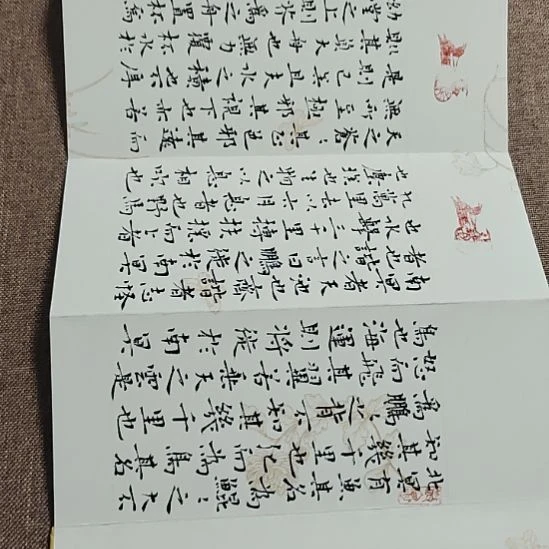 北冥有魚其名為鯤〻之大不
知其幾千里也化而為鳥其名
為鵬〻之背不知其幾千里也
怒而飛其翼若垂天之雲是
鳥也海運則將徙於南冥
南冥者天池也齊諧者志怪
者也諧之言曰鵬之徙於南冥
也水擊三千里摶扶搖而上者
九萬里去以六月息者也野馬
也塵埃也生物之以息相吹也
天之蒼〻其正色邪其遠而
無所至極邪其視下也亦若
是則已矣且夫水之積也不厚
則其負大舟也無力覆杯水於
坳堂之上則芥為之舟置杯焉